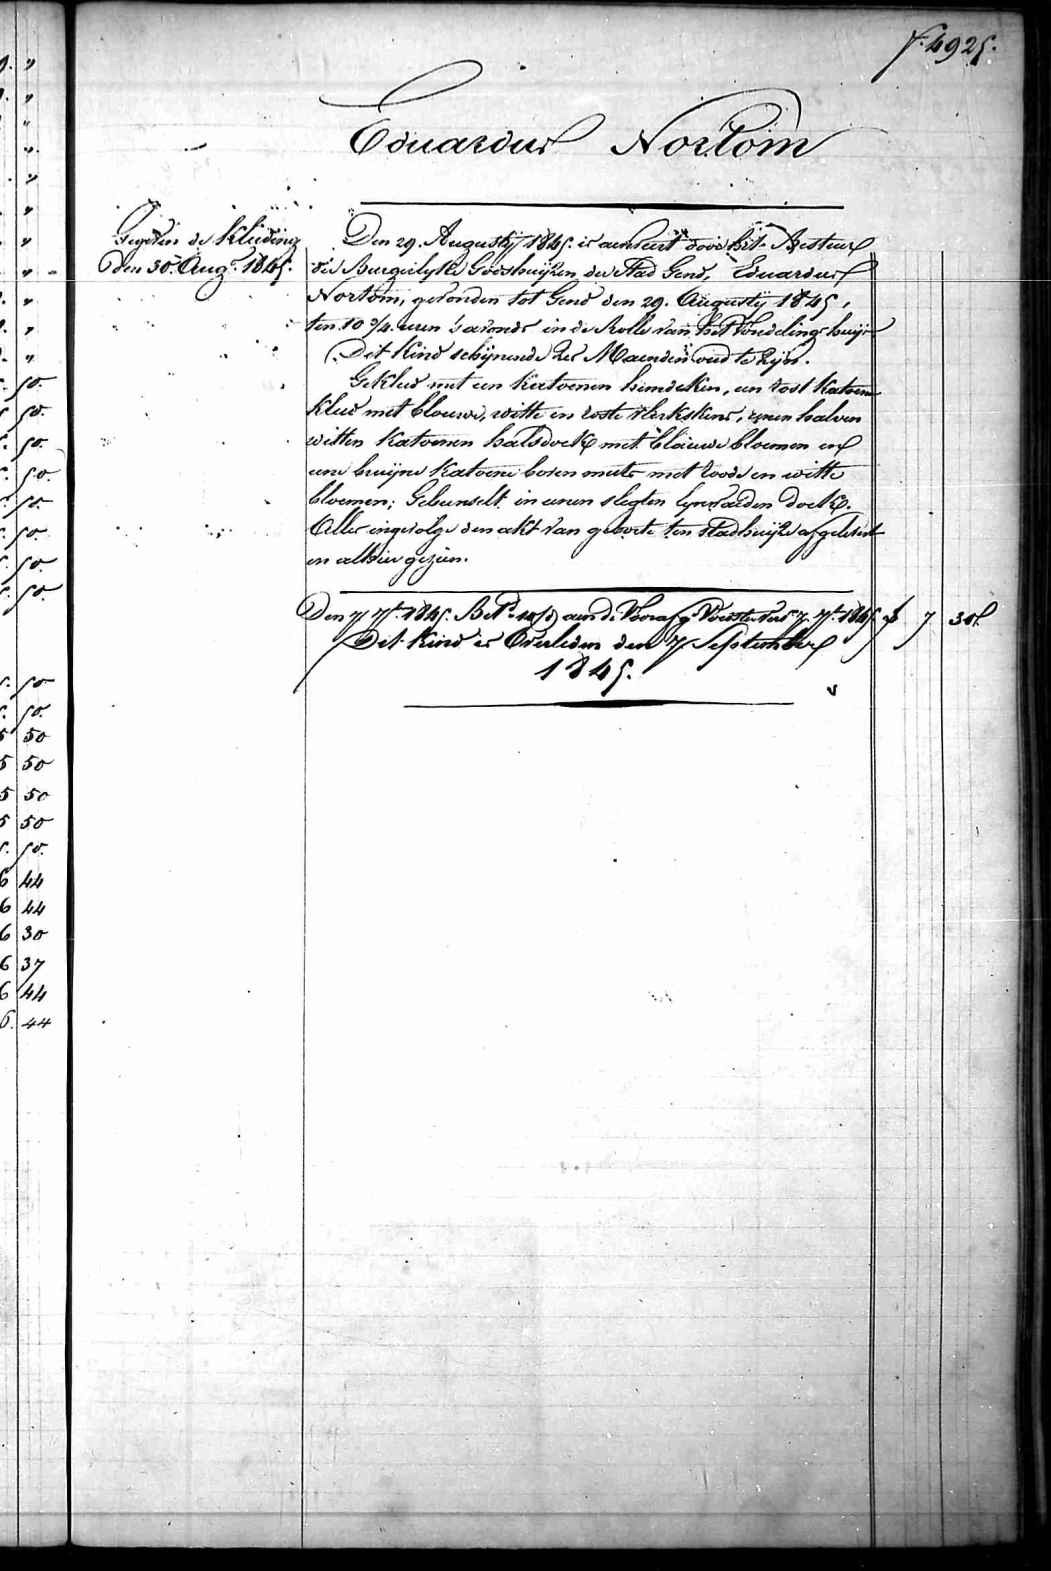 f. 4925.
Eduardus Nortom
Gegeven de Kleeding
Den 30. Aug.s 1845.
Den 29. Augustij 1845. is aenveert door het Bestuur
der Burgerlyke Godshuijzen der Stad Gend, Eduardus
Nortom, gevonden tot Gend den 29. Augustij 1845,
ten 10 3/4 uren 's avonds in de Rolle van het Vondelinghuijs
Dit Kind schijnende zes Maenden oud te zijn.
Gekleed met een Katoenen hemdeken, een rost Katoen
kleed met blouwe, witte en roste vlekskens, eenen halven
witten Katoenen halsdoek met blauwe bloemen en
eene bruijne Katoene boven mute met roode en witte
bloemen; Gebunselt in eenen slegten lynwaeden doek.
Alles ingevolge den akt van geboorte ten stadhuijze afgelevert
en alhier gezien.
Den 7 7.r 1845. Bet.d aen de Voorzg. Voedster 7. 7.r 1845. f 7 30
Dit Kind is Overleden den 7 September
1845.
50
50
50
50
50
50
50
50
50
50
5 50
5 50
5 50
5 50
50
6 44
6 44
6 30
6 37
6 44
6. 44